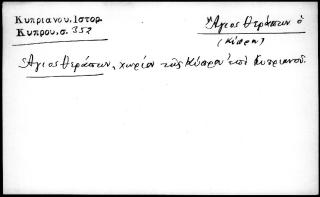 Κυπριανου, Ιστορ.
Κυπρου, σ. 352
Ἅγιος Θεράπων ὁ
(Κύπρου)
Ἅγιος Θεράπων, χωρίον τῆς Κύπρου ἐπὶ Κυπριανοῦ.